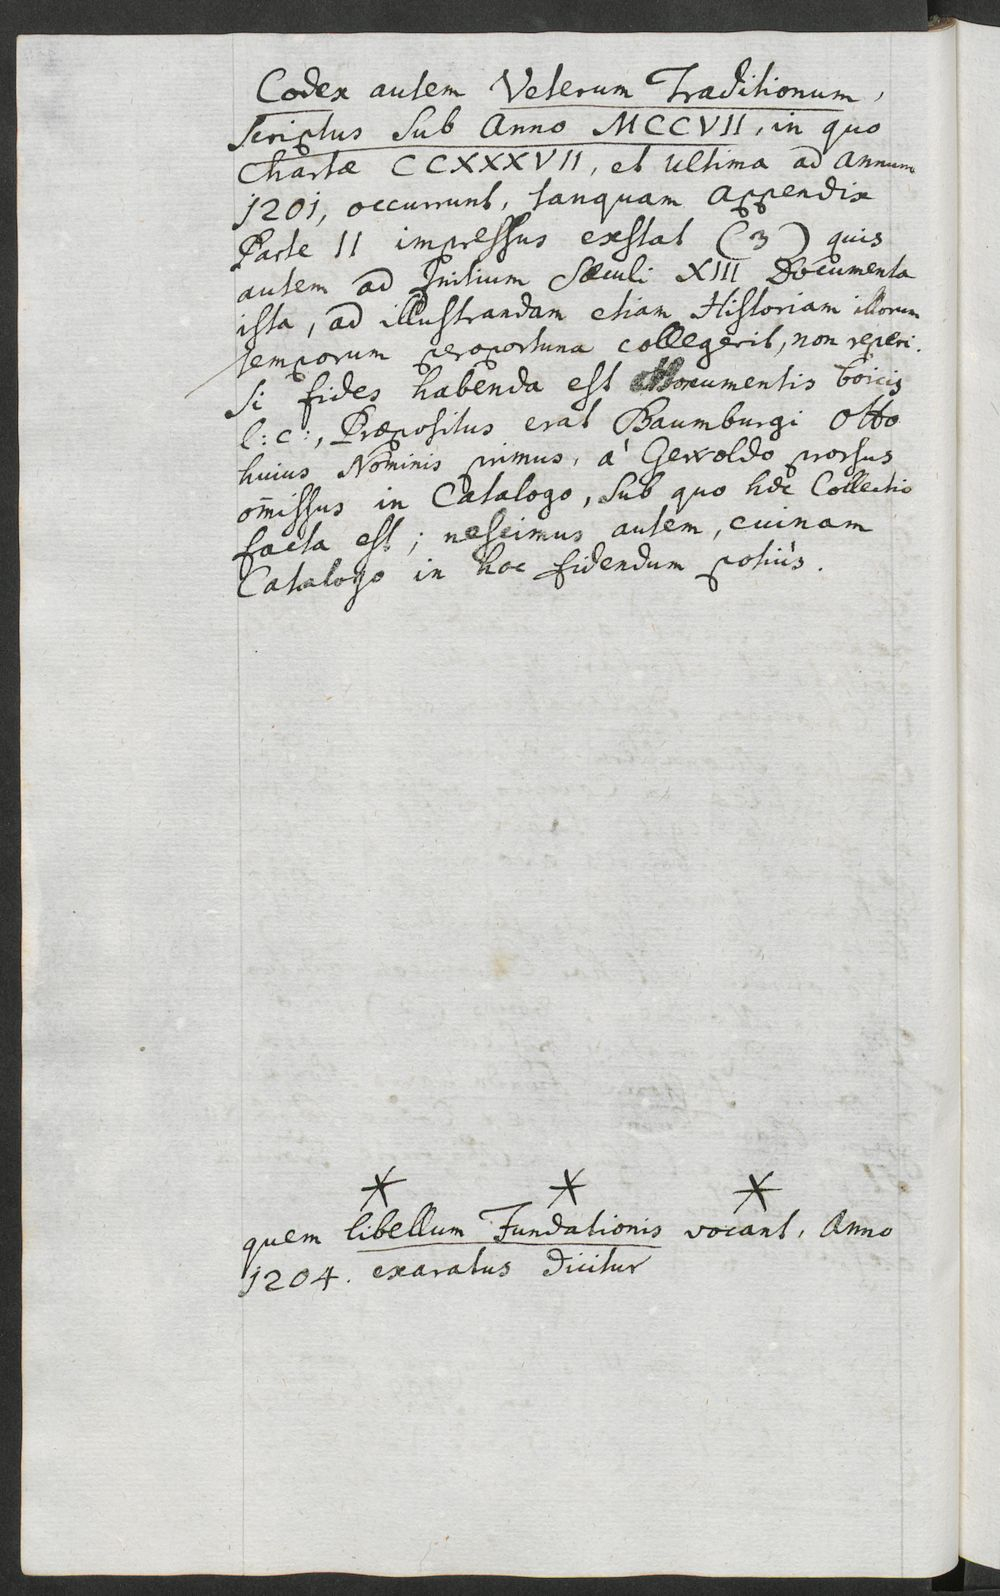 Codex autem Veterum Traditionum,
scriptus sub Anno MCCVII, in quo
Chartæ CCXXXVII, et ultima ad annum
1201, occurrunt, tanquam Appendix
Parte II impressus exstat (3) quis
autem ad Initium Sæculi XIII Documenta
ista, ad illustrandam etiam Historiam illorum
temporum peroportuna collegerit, non reperi.
Si fides habenda est Monumentis boicis
l: c:, Præpositus erat Baumburgi Otto
huius Nominis primus, à Gewoldo prorsus
om̄issus in Catalogo, sub quo hæc Collectio
facta est; nescimus autem, cuinam
Catalogo in hoc fidendum potiùs.
* * *
quem libellum Fundationis vocant, Anno
1204. exaratus dicitur